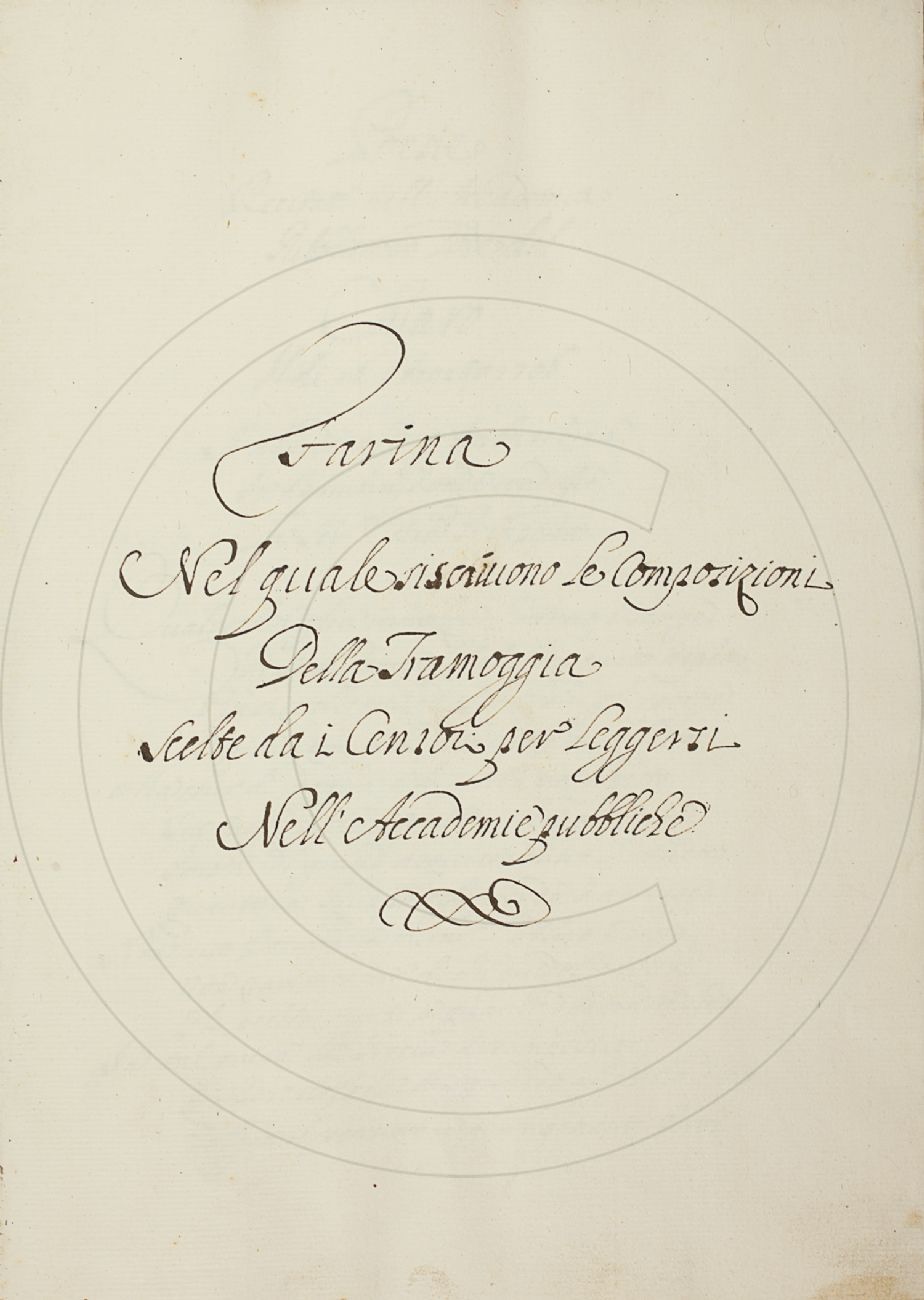 Farina
Nel quale si scriuono le Composizioni
Della Tramoggia
Scelte da i Censori per leggersi
Nell' Accademie pubbliche